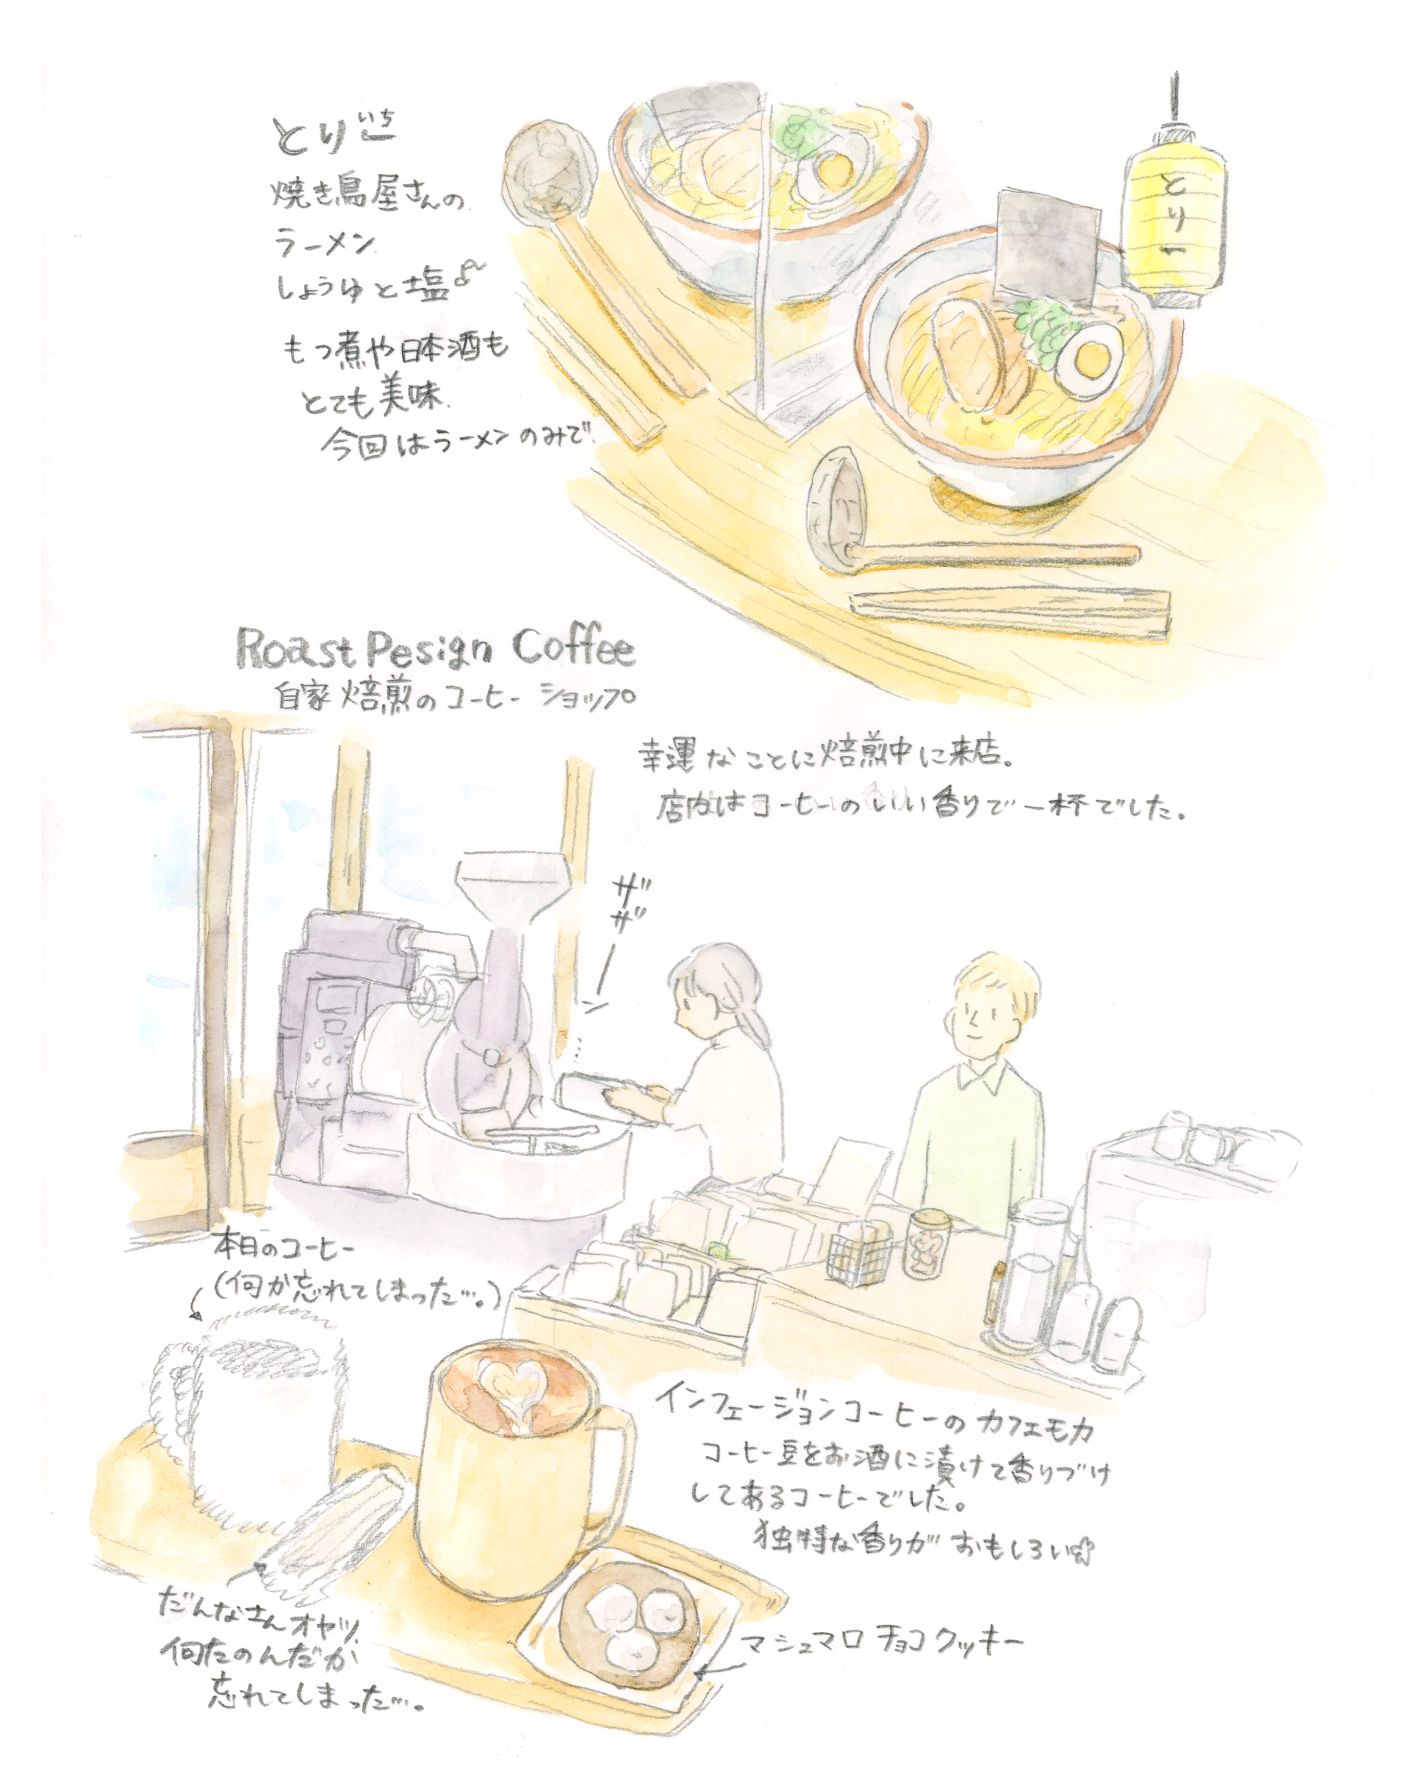 とり一
いち
焼き鳥屋さんの
ラーメン
しょうゆと塩
もつ煮や日本酒も
とても美味
今回はラーメンのみで
とり一
Roast Design Coffee
自家焙煎のコーヒーショップ
幸運なことに焙煎中に来店。
店内はコーヒーのいい香りで一杯でした。
ザザーッ
本日のコーヒー
(何か忘れてしまった…。)
インフュージョンコーヒーのカフェモカ
コーヒー豆をお酒に漬けて香りづけ
してあるコーヒーでした。
独特な香りがおもしろい
だんなさんオヤツ
何たのんだか
忘れてしまった…。
マシュマロチョコクッキー